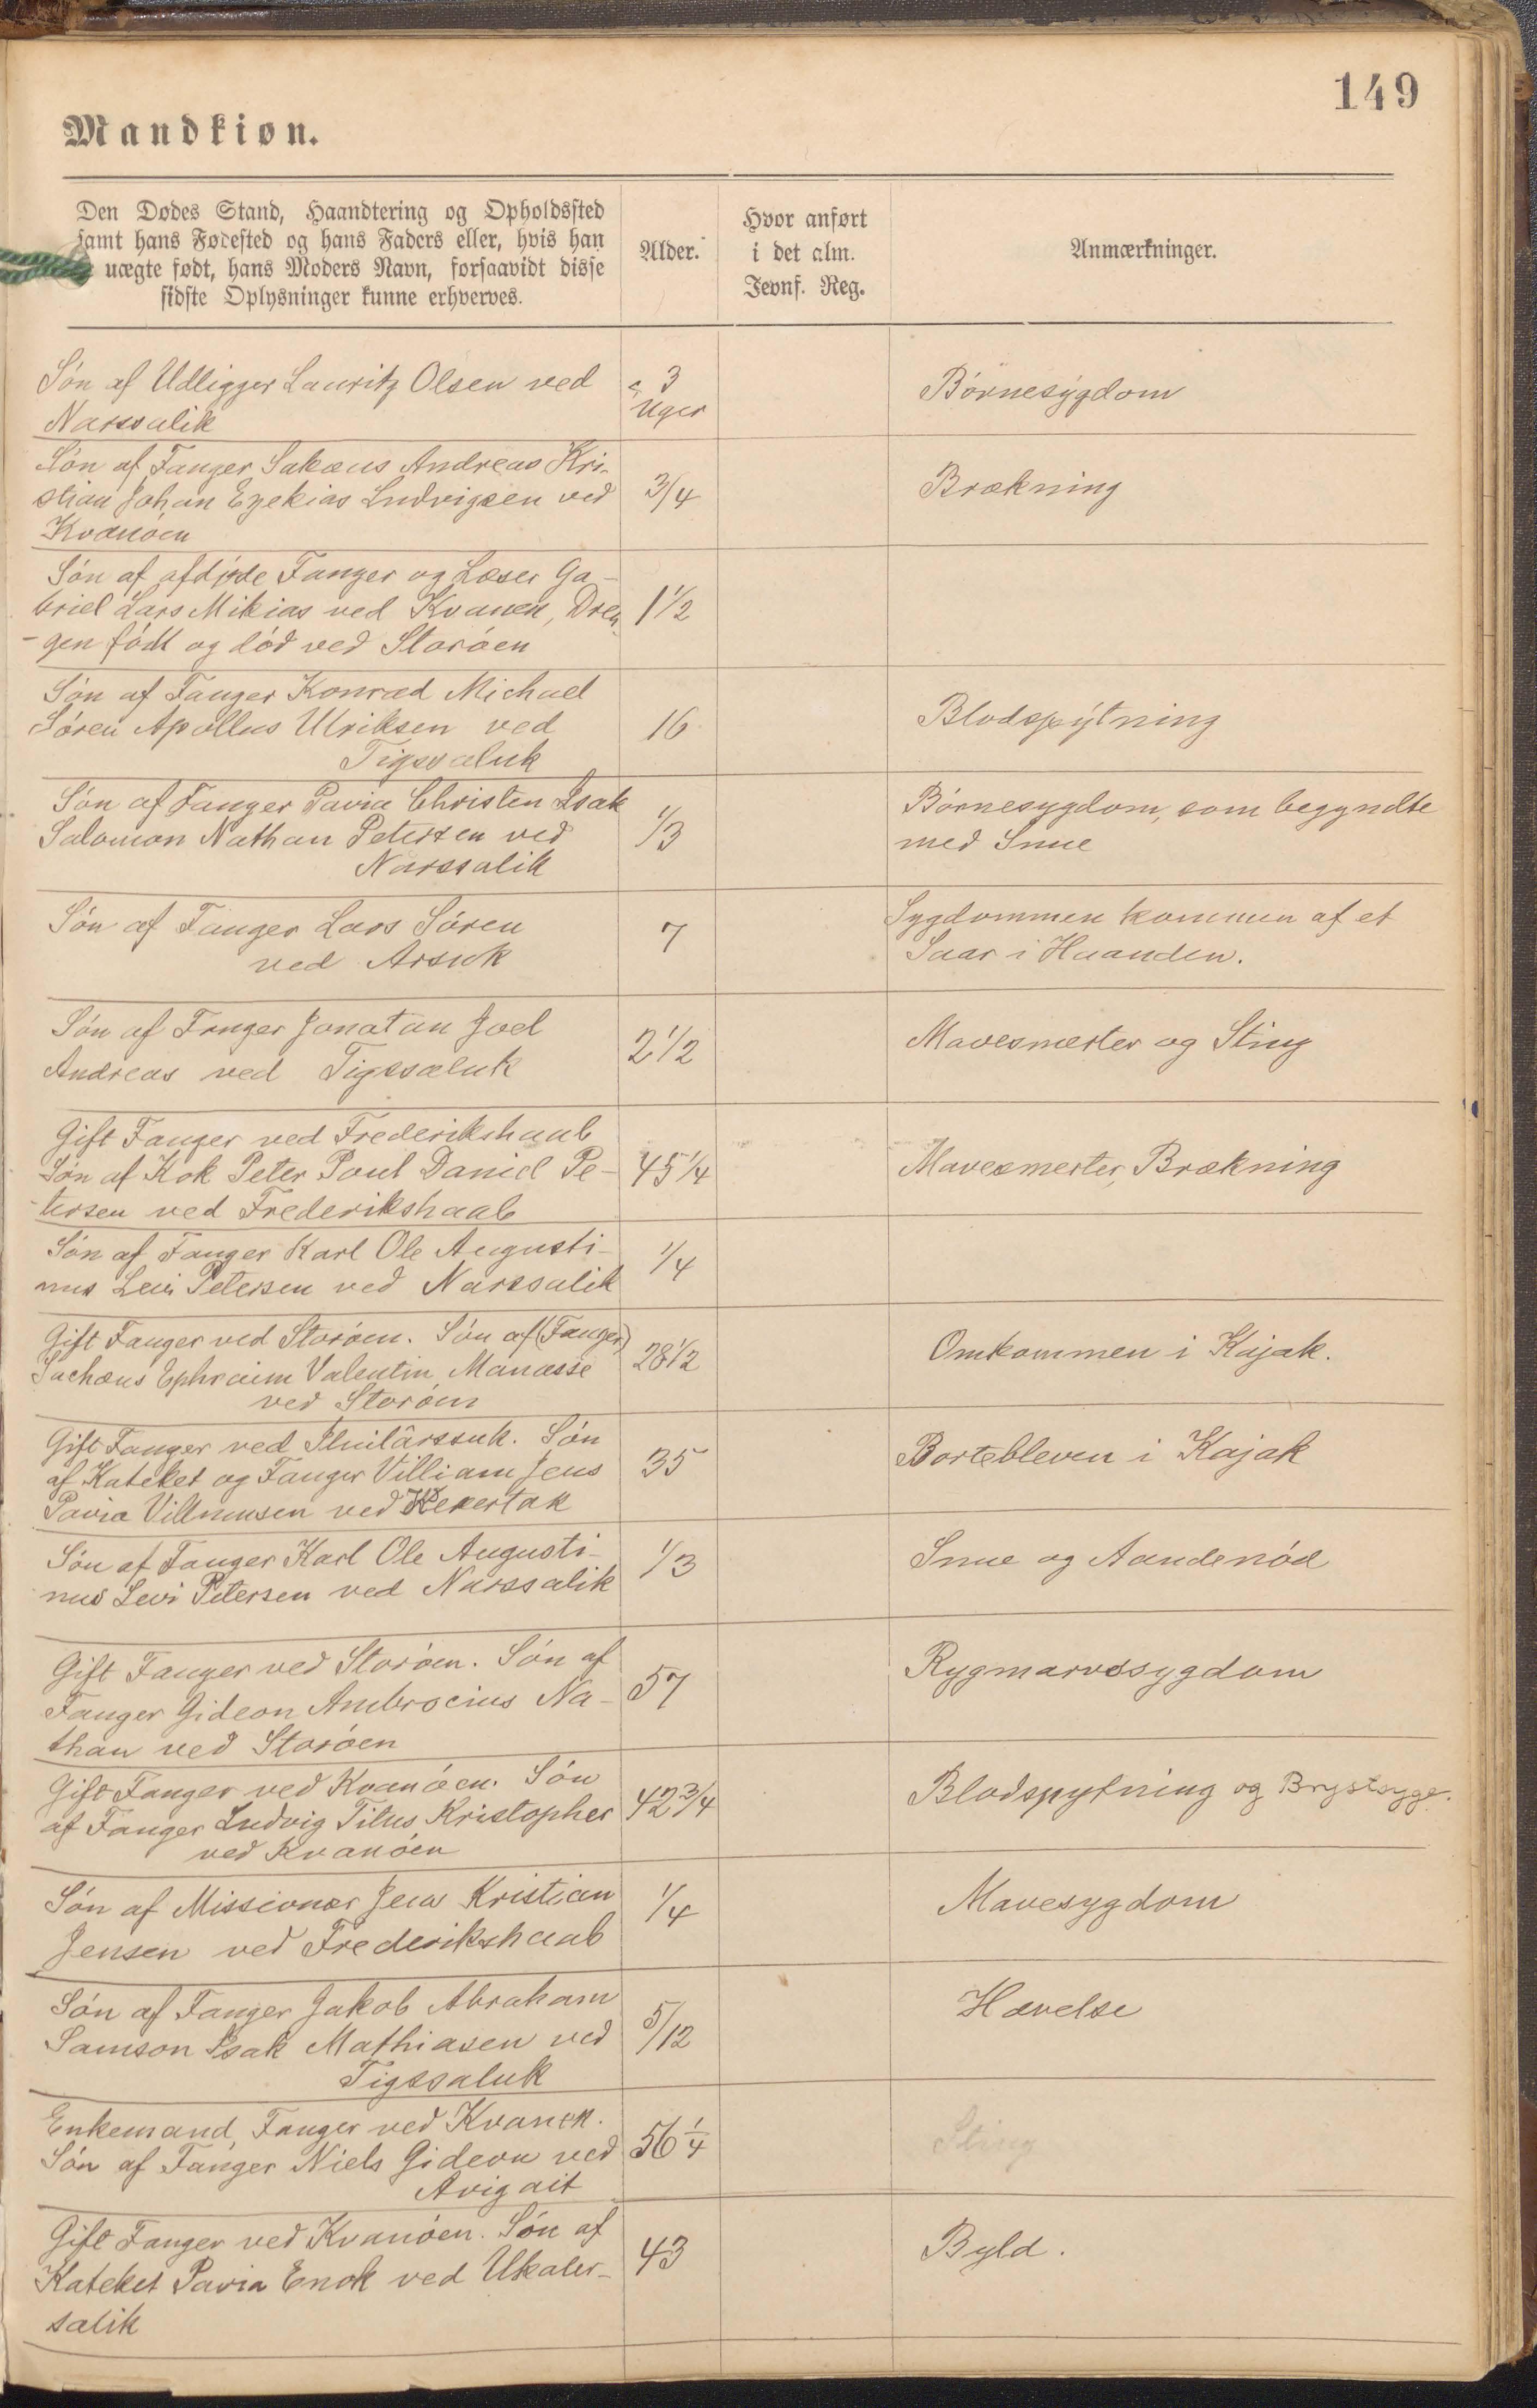 149
Mandkiøn.
Den Dødes Stand, Haandtering og Opholdssted
samt hans Fødested og hans Faders eller, hvis han
uægte født, hans Moders Navn, forsaavidt disse
sidste Oplysninger kunne erhverves.
Alder.
Hvor anført
i det alm.
Jevnf. Reg.
Anmærkninger.
Søn af Udligger Lauritz Olsen ved
Narssalik
3
Uger
Børnesygdom
Søn af Fanger Sakæus Andreas Kri-
stian Johan Ezekias Ludvigsen ved
Kvanøen
3/4
Brækning
Søn af afdøde Fanger og Læser Ga-
briel Lars Mikias ved Kvanen, Dren
-gen født og død ved Storøen
1 1/2
Søn af Fanger Konrad Michael
Søren Apollus Ulriksen ved
Tigssaluk
16
Blodspytning
Søn af Fanger Pavia Christen Isak
Salomon Nathan Petersen ved
Narssalik
1/3
Børnesygdom, som begyndte
med Snue
Søn af Fanger Lars Søren
ved Arsuk
7
Sygdommen kommen af et
Saar i Haanden.
Søn af Fanger Jonatan Joel
Andreas ved Tigssaluk
2 1/2
Mavesmerter og Sting
Gift Fanger ved Frederikshaab
Søn af Kok Peter Poul Daniel Pe-
tersen ved Frederikshaab
45 1/4
Mavesmerter, Brækning
Søn af Fanger Karl Ole Augusti-
nus Levi Petersen ved Narssalik
1/4
Gift Fanger ved Storøen. Søn af (Fanger)
Sachæus Ephraim Valentin Manasse
ved Storøen
28 1/2
Omkommen i Kajak.
Gift Fanger ved Iluilârssuk. Søn
af Kateket og Fanger Villiam Jens
Pavia Villumsen ved Kekertak
35
Bortebleven i Kajak
Søn af Fanger Karl Ole Augusti-
nus Levi Petersen ved Narssalik
1/3
Snue og Aandenød
Gift Fanger ved Storøen. Søn af
Fanger Gideon Ambrocius Na-
than ved Storøen
57
Rygmarvssygdom
Gift Fanger ved Kvanøen. Søn
af Fanger Ludvig Titus Kristopher
ved Kvanøen
42 3/4
Blodspytning og Brystsyge.
Søn af Missionær Jens Kristian
Jensen ved Frederikshaab
1/4
Mavesygdom
Søn af Fanger Jakob Abraham
Samson Isak Mathiasen ved
Tigssaluk
5/12
Hævelse
Enkemand, Fanger ved Kvanen.
Søn af Fanger Niels Gideon ved
Avigait
56 1/4
Sting
Gift Fanger ved Kvanøen. Søn af
Kateket Pavia Enok ved Ukaler-
salik
43
Byld.